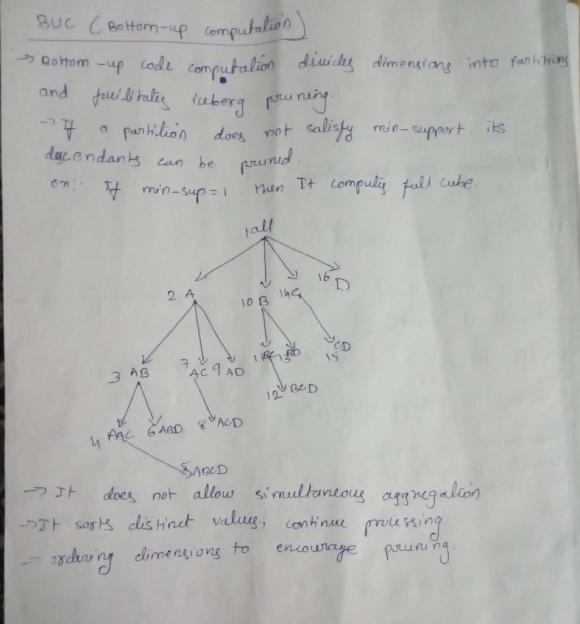 BUC (Bottom-up computation)
→ Bottom-up code computation divides dimensions into partitions
and facilitates iceberg pruning.
→ If a partition does not satisfy min-support. its
descendants can be pruned.
ex:- If min-sup=1. then It computes full cube.
1 all
2 A 10 B 14 C 16 D
3 AB 7 AC 9 AD 11 BC 13 BD 15 CD
12 BCD
4 ABC 6 ABD 8 ACD
5 ABCD
→ It does not allow simultaneous aggregation
→ It sorts distinct values, continue processing
→ ordering dimensions to encourage pruning.